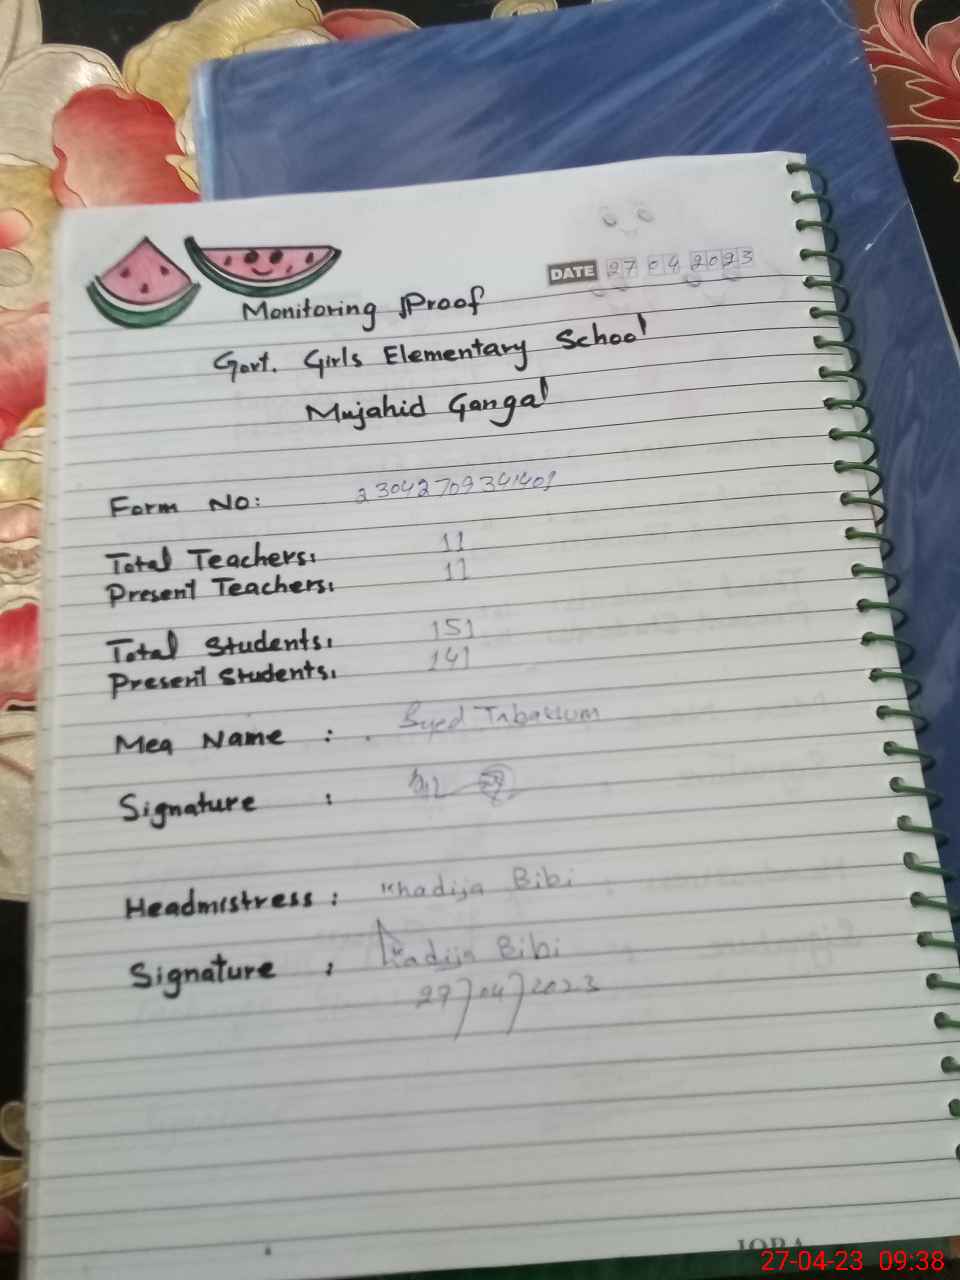 DATE 27 04 2023
Monitoring Proof
Govt. Girls Elementary School
Mujahid Gangal
Form No: 23042709341401
Total Teachers: 11
Present Teachers: 11
Total Students: 151
Present Students: 141
Mea Name : Syed Tabassum
Signature :
Headmistress : Khadija Bibi
Signature : Khadija Bibi
27/04/2023
27-04-23 09:38